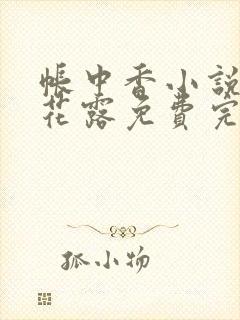 帳中香小說
花露免費完
狐小物